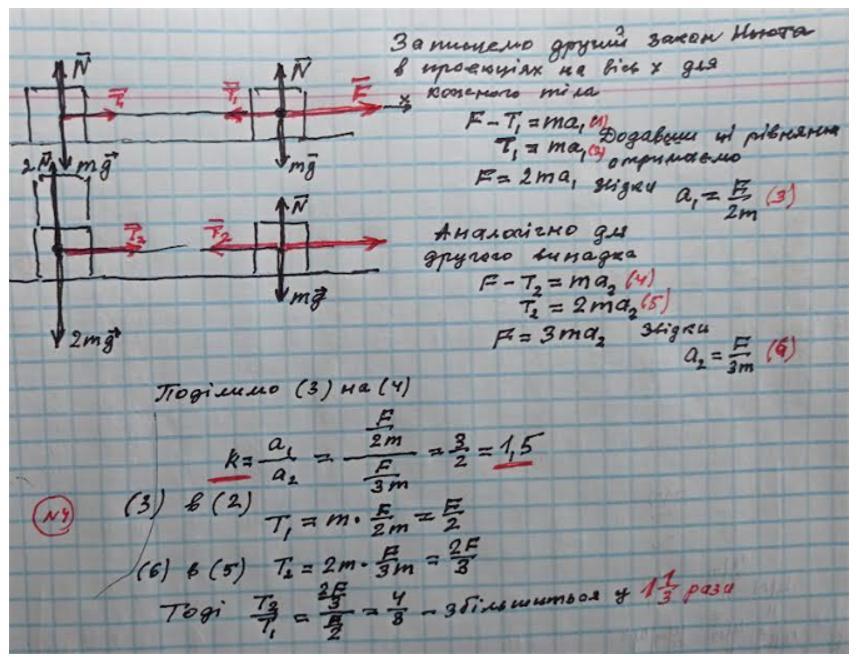 Запишемо другий закон Ньюта
в проекціях на вісь x для
кожного тіла
N⃗
N⃗
T⃗₁
T⃗₁
F⃗
x
mg⃗
mg⃗
F - T₁ = ma₁ (1)
T₁ = ma₁ (2)
Додавши ці рівняння
отримаємо
F = 2ma₁ звідки a₁ = F/2m (3)
2N⃗
N⃗
T⃗₂
T⃗₂
mg⃗
2mg⃗
Аналогічно для
другого випадка
F - T₂ = ma₂ (4)
T₂ = 2ma₂ (5)
F = 3ma₂ звідки
a₂ = F/3m (6)
Поділимо (3) на (4)
k = a₁/a₂ = (F/2m)/(F/3m) = 3/2 = 1,5
N4
(3) в (2)
T₁ = m · F/2m = F/2
(6) в (5) T₂ = 2m · F/3m = 2F/3
Тоді T₂/T₁ = (2F/3)/(F/2) = 4/3 - збільшиться у 1 1/3 рази